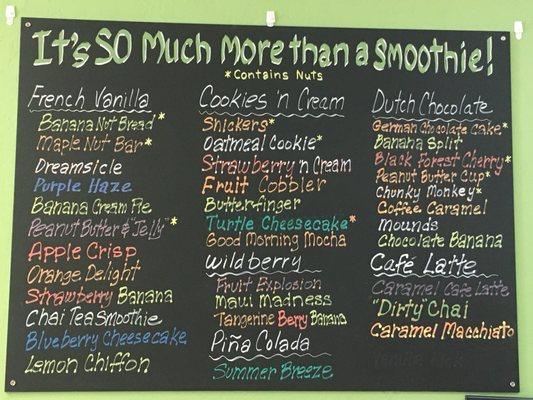 It's SO Much More than a smoothie!
*Contains Nuts
French Vanilla
Banana Nut Bread*
Maple Nut Bar*
Dreamsicle
Purple Haze
Banana Cream Pie
Peanut Butter & "Jelly"*
Apple Crisp
Orange Delight
Strawberry Banana
Chai Tea Smoothie
Blueberry Cheesecake
Lemon Chiffon
Cookies 'n Cream
Snickers*
Oatmeal Cookie*
Strawberry 'n Cream
Fruit Cobbler
Butterfinger
Turtle Cheesecake*
Good Morning Mocha
Wildberry
Fruit Explosion
Maui Madness
Tangerine Berry Banana
Piña Colada
Summer Breeze
Dutch Chocolate
German Chocolate Cake*
Banana Split
Black Forest Cherry*
Peanut Butter Cup*
Chunky Monkey*
Coffee Caramel
Mounds
Chocolate Banana
Café Latte
Caramel Cafe Latte
"Dirty" Chai
Caramel Macchiato